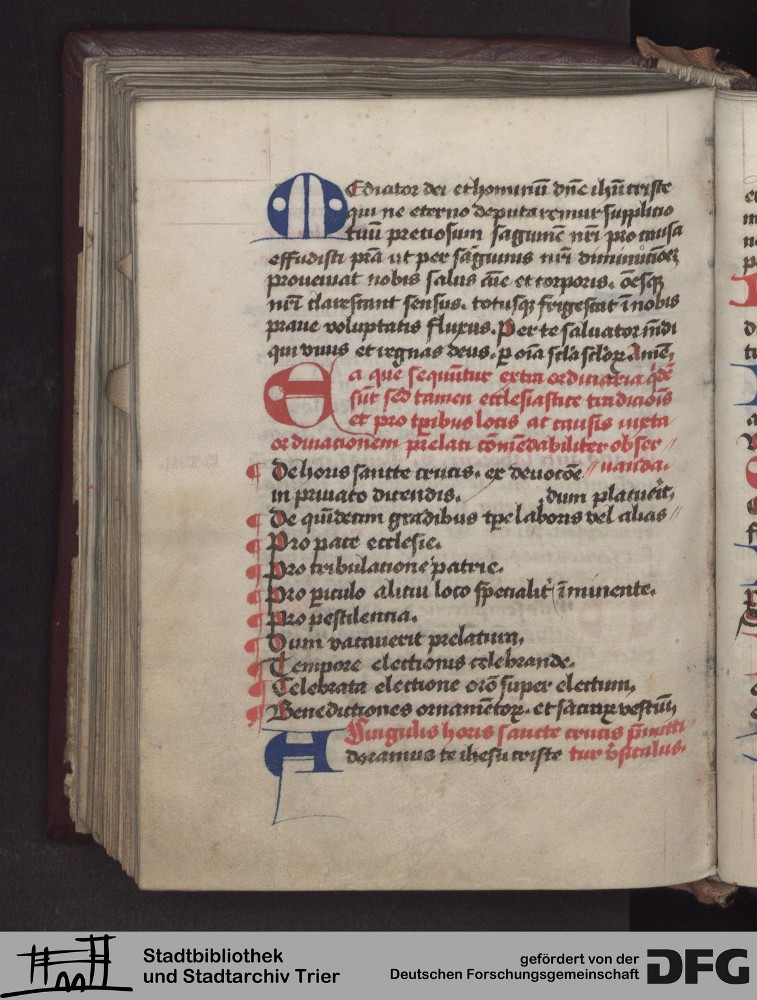 Mediator dei et hominū dn̄e ihū criste
qui ne eterno deputaremur supplicio
tuū preciosum sāguinē nr̄i pro causa
effudisti p̄sta ut per sāguinis nr̄i
proveniat nobis salus aīe et corporis. oēsqȝ
nr̄i clarescant sensus. totusqȝ frigescat ī nobis
praue voluptatis fluxus. Per te saluator mūdi
qui viuis et regnas deus. ꝑ oīa scl̄a scl̄oꝝ Amē,
Ea que sequūtur extra ordinaria q̄dē
sūt sed tamen ecclesiastice tradicōis
et pro tꝑibus locis ac causis iuxta
ordinacionem prelati cōmēdabiliter obser//
De horis sancte crucis. ex deuocōe //uanda.
in priuato dicendis. dum placuerit,
De quīdecim gradibus tꝑe laboris vel alias //
Pro pace ecclesie.
Pro tribulatione patrie.
Pro ꝑiculo alicui loco specialit̄ īminente.
Pro pestilencia.
Dum vacauerit prelatura,
Tempore electionis celebrande.
Celebrata electione orō super electum,
Benedictiones ornamētoꝝ. et sacraꝝ vestiū,
In singulis horis sancte crucis p̄mitti
Adoramus te ihesu criste tur v̄siculus.
Stadtbibliothek
und Stadtarchiv Trier
gefördert von der
Deutschen Forschungsgemeinschaft
DFG